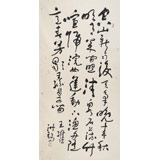 空山新雨後天氣晚來秋
明月松間照清泉石上流竹
喧歸浣女蓮動下漁舟隨
意春芳歇王孫自可留
王維